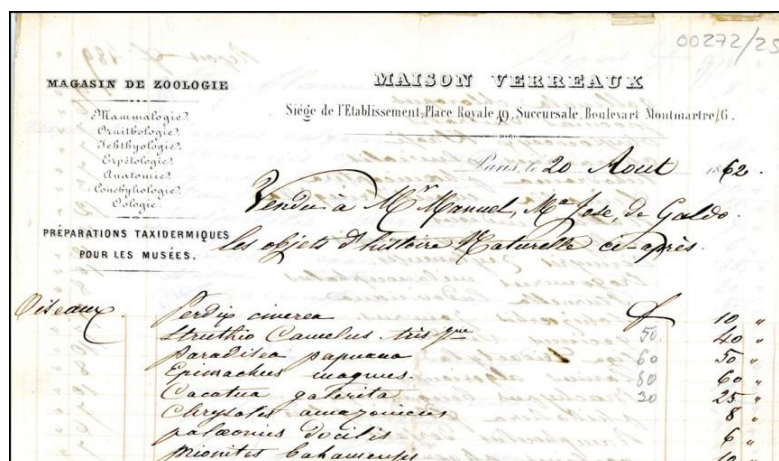 00272/25
MAGASIN DE ZOOLOGIE
Mammalogie
Ornithologie
Ichthyologie
Erpétologie
Anatomie
Conchyliologie
Oologie
PRÉPARATIONS TAXIDERMIQUES
POUR LES MUSÉES.
MAISON VERREAUX
Siége de l'Etablissement, Place Royale, 9, Succursale, Boulevart Montmartre, 6.
Paris, le 20 Aout 1862.
Vendu à Mr Manuel, Ma José, de Galdo.
les objets d'histoire Naturelle ci-après.
Oiseaux. Perdix cinerea f 10 "
Struthio Camelus très 50 40 "
Paradisea papuana 60 50 "
Epimachus magnus. 80 60 "
Cacatua galerita 30 25 "
Chrysotis amazonicus 8 "
palæornis docilis 6 "
prionites bahamensis 10 "